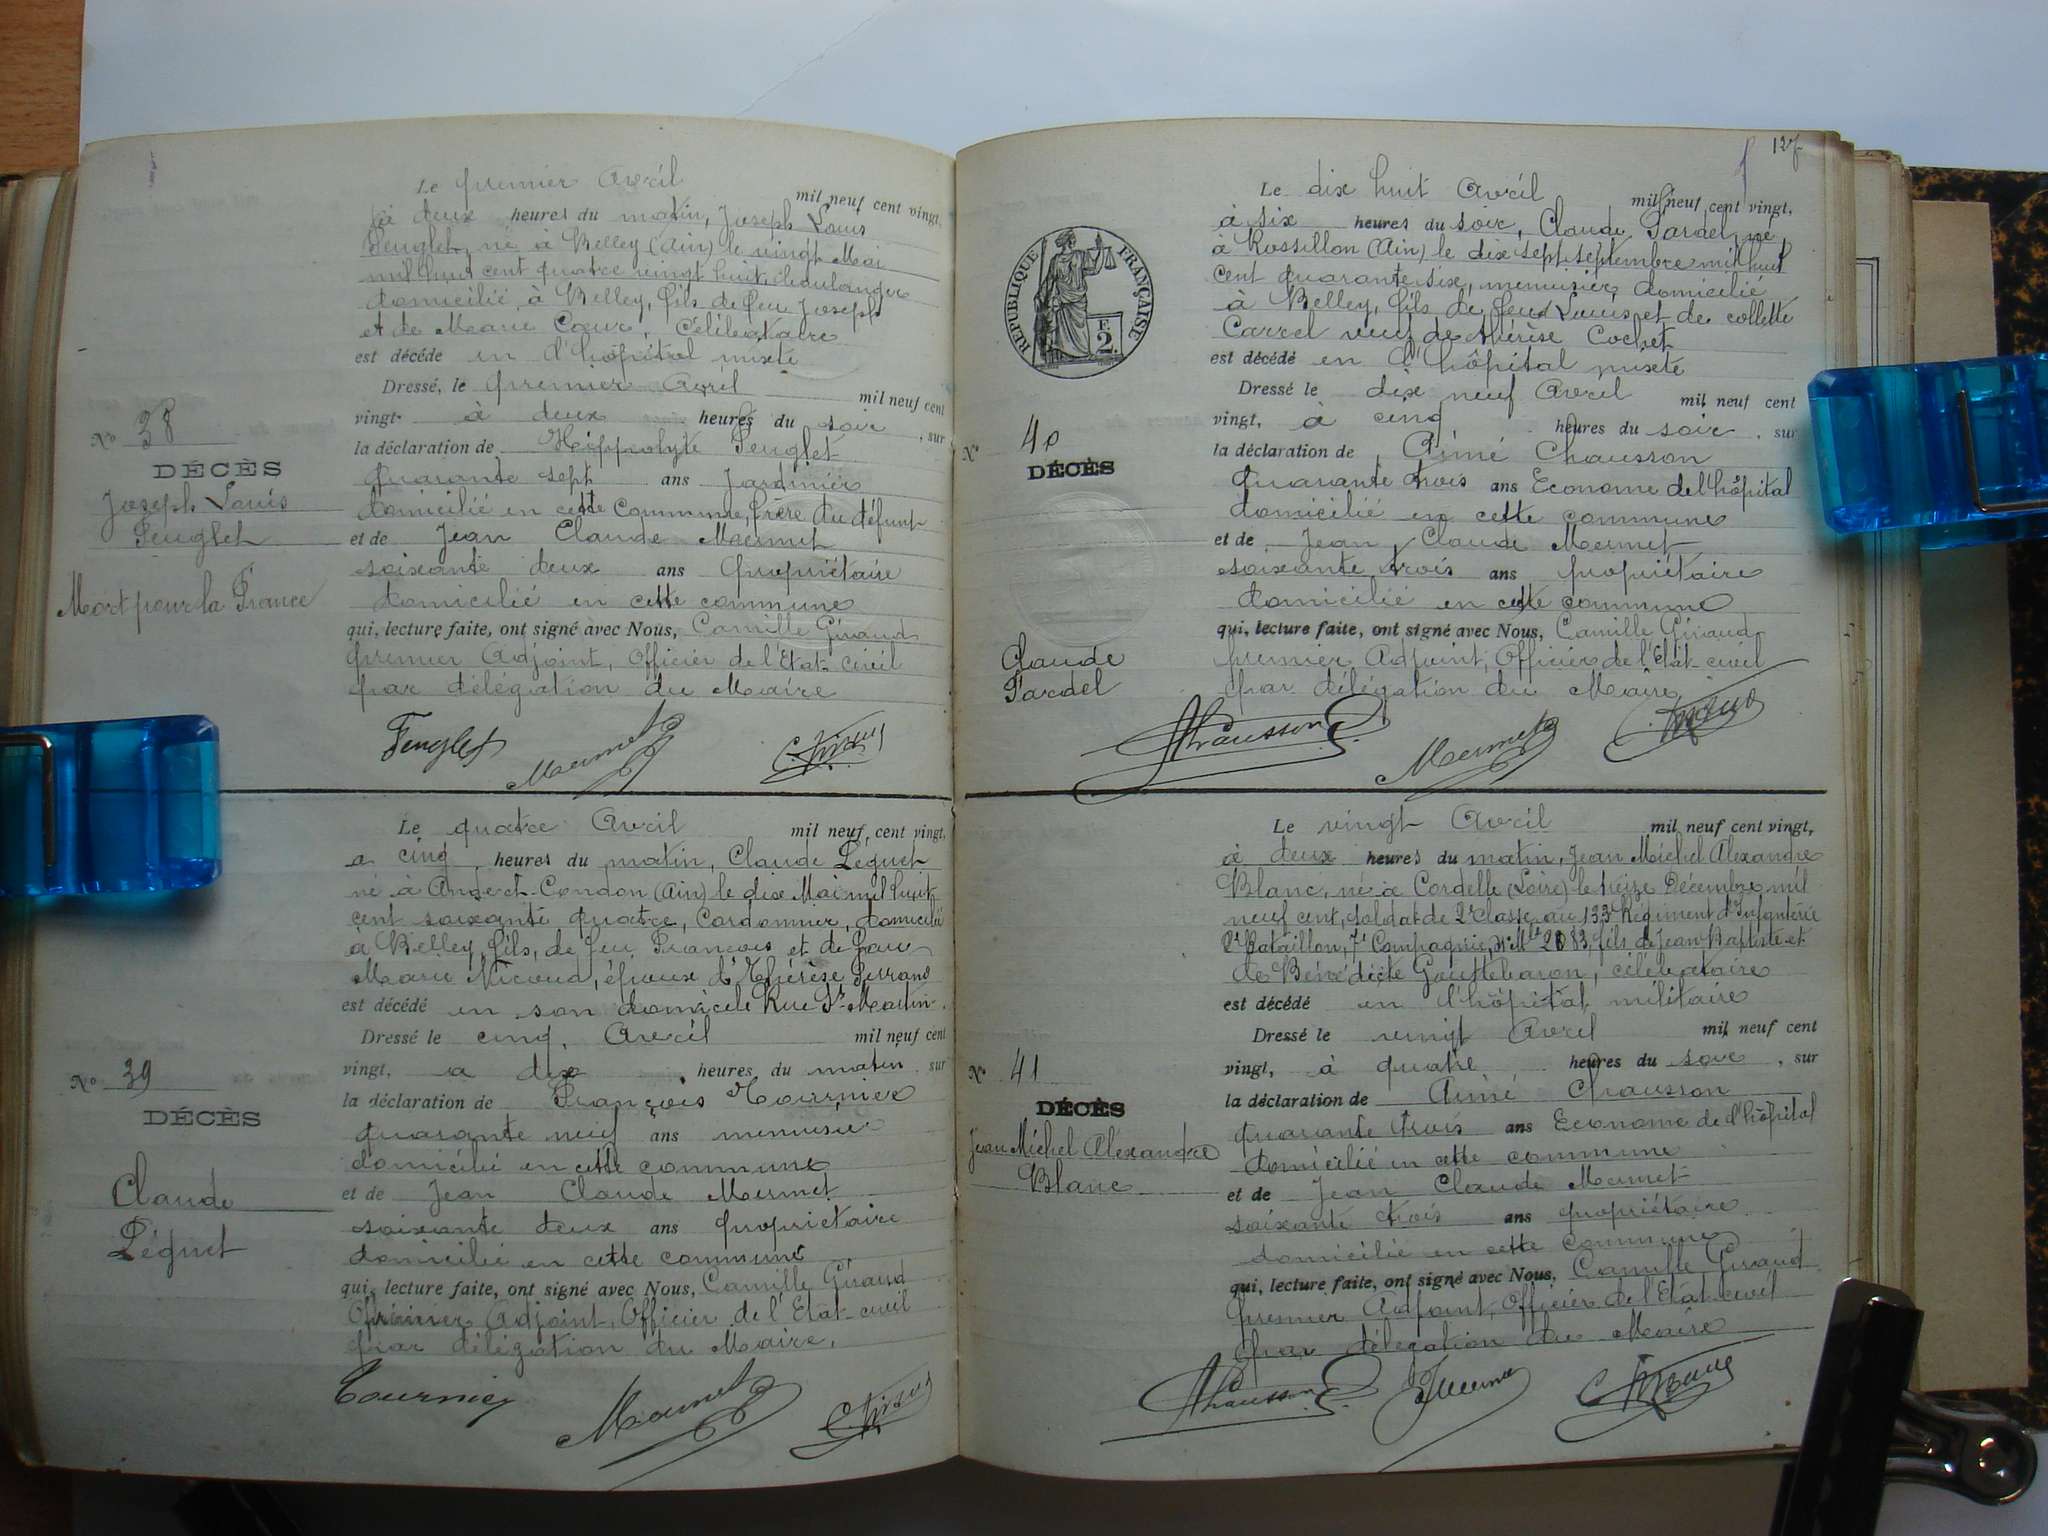 Le premier Avril mil neuf cent vingt,
à deux heures du matin, Joseph Louis
Feuglet, né à Belley (Ain) le vingt Mai
mil huit cent quatre vingt huit, boulanger
domicilié à Belley, fils de feu Joseph
et de Marie Cœur, Célibataire
est décédé en l'hôpital mixte
Dressé, le premier Avril mil neuf cent
vingt à deux heures du soir, sur
la déclaration de Hippolyte Feuglet
Quarante sept ans Jardinier
domicilié en cette Commune, frère du défunt
et de Jean Claude Mermet
soixante deux ans propriétaire
domicilié en cette commune
qui, lecture faite, ont signé avec Nous, Camille Giraud
premier Adjoint, Officier de l'Etat-civil
par délégation du Maire
Feuglet Mermet C. Giraud
No 38
DÉCÈS
Joseph Louis
Feuglet
Mort pour la France
Le quatre Avril mil neuf cent vingt,
a cinq heures du matin, Claude Léguet
né à Andert-Condon (Ain) le dix Mai mil huit
cent soixante quatre, Cordonnier, domicilié
a Belley, fils, de feu François et de feue
Marie Nicoud, époux de Thérèse Perrand
est décédé en son domicile Rue St Martin.
Dressé le cinq Avril mil neuf cent
vingt, a dix heures du matin, sur
la déclaration de François Tournier
quarante neuf ans menuisier
domicilié en cette commune
et de Jean Claude Mermet
soixante deux ans propriétaire
domicilié en cette commune
qui, lecture faite, ont signé avec Nous, Camille Giraud
Premier Adjoint, Officier de l'Etat-civil
par délégation du Maire.
Tournier Mermet C. Giraud
No 39
DÉCÈS
Claude
Léguet
127
RÉPUBLIQUE FRANÇAISE
F.
2.
Le dix huit Avril mil neuf cent vingt,
à six heures du soir, Claude Pardel, né
à Rossillon (Ain) le dix sept septembre mil huit
cent quarante six, menuisier, domicilié
à Belley, fils de feu Louis et de Collette
Carrel veuf de Thérèse Cochet
est décédé en l'hôpital mixte
Dressé le dix neuf Avril mil neuf cent
vingt, à cinq heures du soir, sur
la déclaration de Aimé Chausson
Quarante trois ans Econome de l'hôpital
domicilié en cette commune
et de Jean Claude Mermet
soixante trois ans propriétaire
domicilié en cette commune
qui, lecture faite, ont signé avec Nous, Camille Giraud
premier Adjoint, Officier de l'Etat-civil
par délégation du Maire
Chausson Mermet C. Giraud
No 40
DÉCÈS
Claude
Pardel
Le vingt Avril mil neuf cent vingt,
à deux heures du matin, Jean Michel Alexandre
Blanc, né à Cordelle (Loire) le treize Décembre mil
neuf cent, soldat de 2e classe au 133e Régiment d'Infanterie
2e Bataillon, 7e Compagnie, n° Mle 2083, fils de Jean Baptiste et
de Bénédicte Gouttebaron, célibataire
est décédé en l'hôpital militaire
Dressé le vingt Avril mil neuf cent
vingt, à quatre heures du soir, sur
la déclaration de Aimé Chausson
Quarante trois ans Econome de l'hôpital
domicilié en cette commune
et de Jean Claude Mermet
soixante trois ans propriétaire
domicilié en cette commune
qui, lecture faite, ont signé avec Nous, Camille Giraud
premier Adjoint, Officier de l'Etat-civil
par délégation du Maire
Chausson Mermet C. Giraud
No 41
DÉCÈS
Jean Michel Alexandre
Blanc